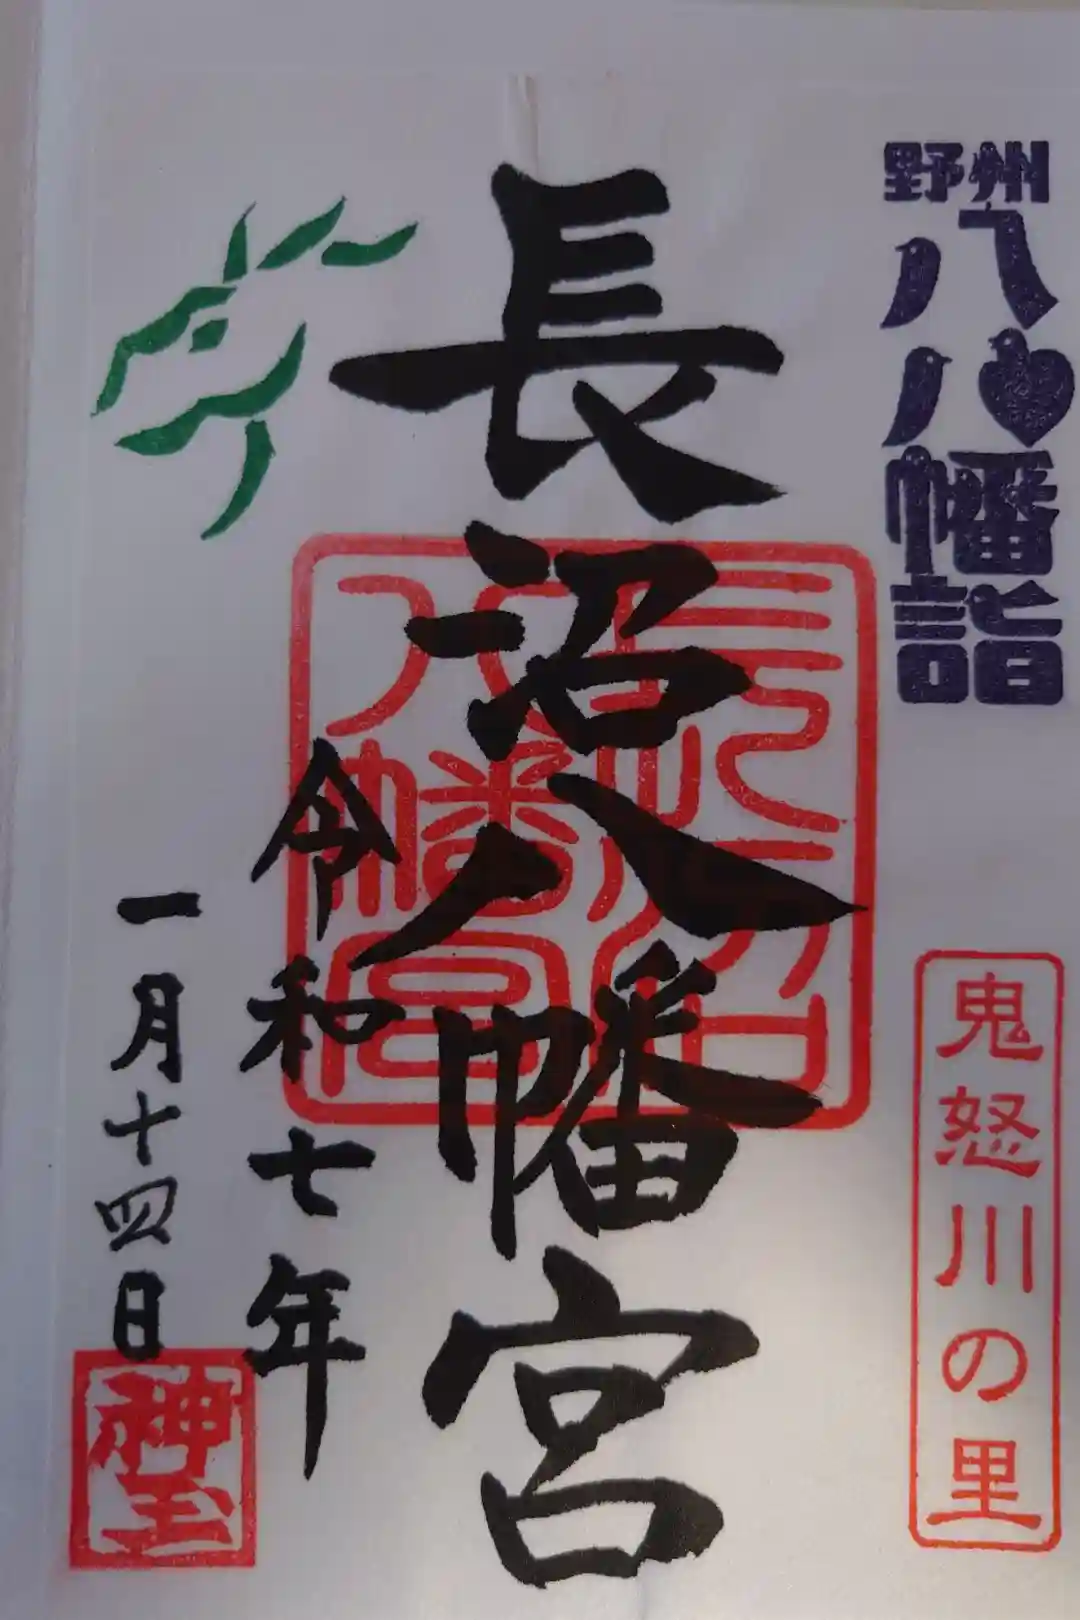 野州
八八幡詣
鬼怒川の里
長沼八幡宮
長沼八幡宮
令和七年
一月十四日